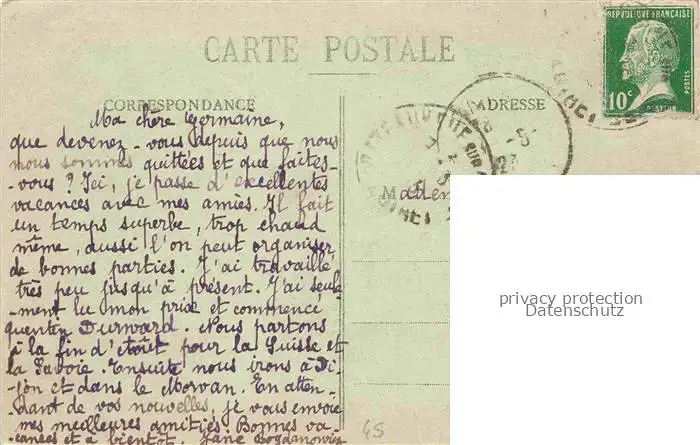 REPVBLIQVE FRANÇAISE
10c
POSTES
PASTEUR
CARTE POSTALE
CORRESPONDANCE
ADRESSE
Ma chère Germaine,
que devenez-vous depuis que nous
nous sommes quittées et que faites-
-vous ? Ici, je passe d'excellentes
vacances avec mes amies. Il fait
un temps superbe, trop chaud
même, aussi l'on peut organiser
de bonnes parties. J'ai travaillé
très peu jusqu'à présent. J'ai seule-
-ment lu mon prix et commencé
quentin Durward. Nous partons
à la fin d'Août pour la Suisse et
la Savoie. Ensuite nous irons à Di-
-jon et dans le Morvan. En atten-
-dant de vos nouvelles, je vous envoie
mes meilleures amitiés. Bonnes va-
-canses et à bientôt. Jane Bogdanowicz
Madem
privacy protection
Datenschutz
45